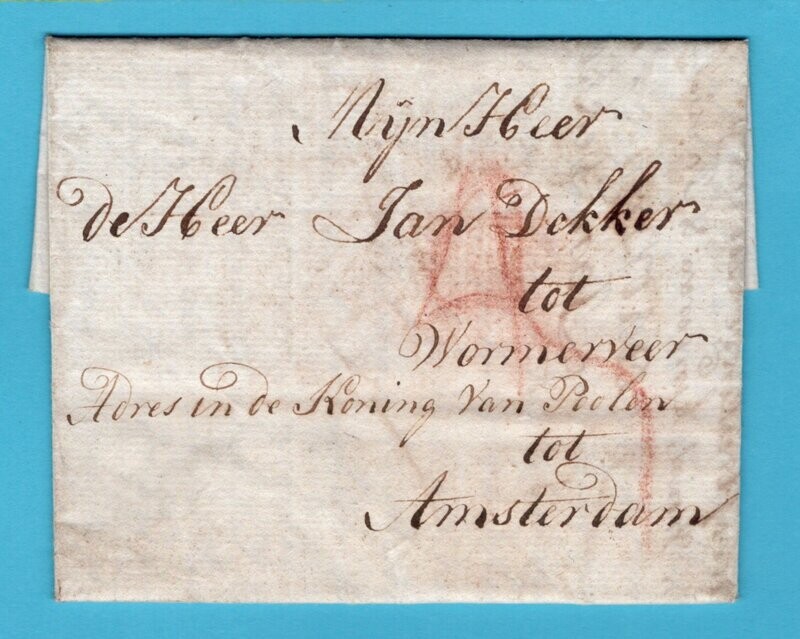 Mijn Heer
de Heer Jan Dekker
tot
Wormerveer
Adres in de Koning Van Poolen
tot
Amsterdam